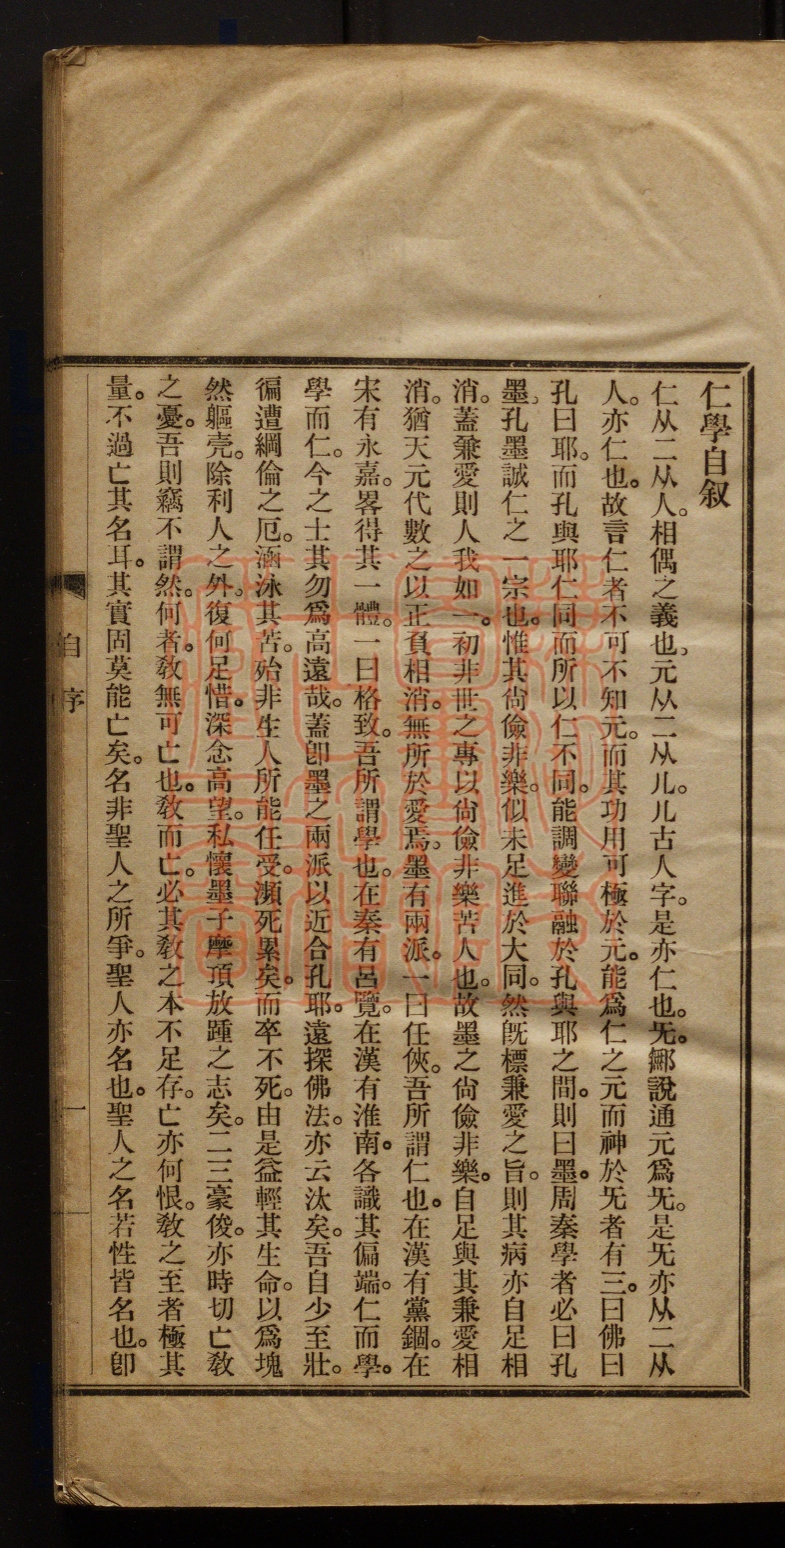 仁學自叙
仁从二从人。相偶之義也。元从二从儿。儿古人字。是亦仁也。无。鄦說通元爲无。是无亦从二从
人。亦仁也。故言仁者不可不知元。而其功用可極於元。能爲仁之元而神於无者有三。曰佛曰
孔曰耶。而孔與耶仁同而所以仁不同。能調燮聯融於孔與耶之間。則曰墨。周秦學者必曰孔
墨。孔墨誠仁之一宗也。惟其尙儉非樂。似未足進於大同。然旣標兼愛之旨。則其病亦自足相
消。蓋兼愛則人我如一。初非世之專以尙儉非樂苦人也。故墨之尙儉非樂。自足與其兼愛相
消。猶天元代數之以正負相消。無所於愛焉。墨有兩派。一曰任俠。吾所謂仁也。在漢有黨錮。在
宋有永嘉。畧得其一體。一曰格致。吾所謂學也。在秦有呂覽。在漢有淮南。各識其偏端。仁而學。
學而仁。今之士其勿爲高遠哉。蓋卽墨之兩派以近合孔耶。遠探佛法。亦云汰矣。吾自少至壯。
徧遭綱倫之厄。涵泳其苦。殆非生人所能任受。瀕死累矣。而卒不死。由是益輕其生命。以爲塊
然軀壳。除利人之外。復何足惜。深念高望。私懷墨子摩頂放踵之志矣。二三豪俊。亦時切亡敎
之憂。吾則竊不謂然。何者。敎無可亡也。敎而亡。必其敎之本不足存。亡亦何恨。敎之至者極其
量。不過亡其名耳。其實固莫能亡矣。名非聖人之所爭。聖人亦名也。聖人之名若性皆名也。卽
自序
一